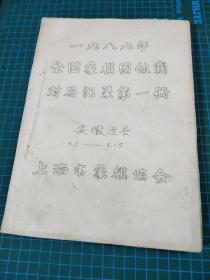 一九八九年
全国象棋团体赛
对局记录第一册
安徽泾县
5.1——5.15
上海市象棋協会